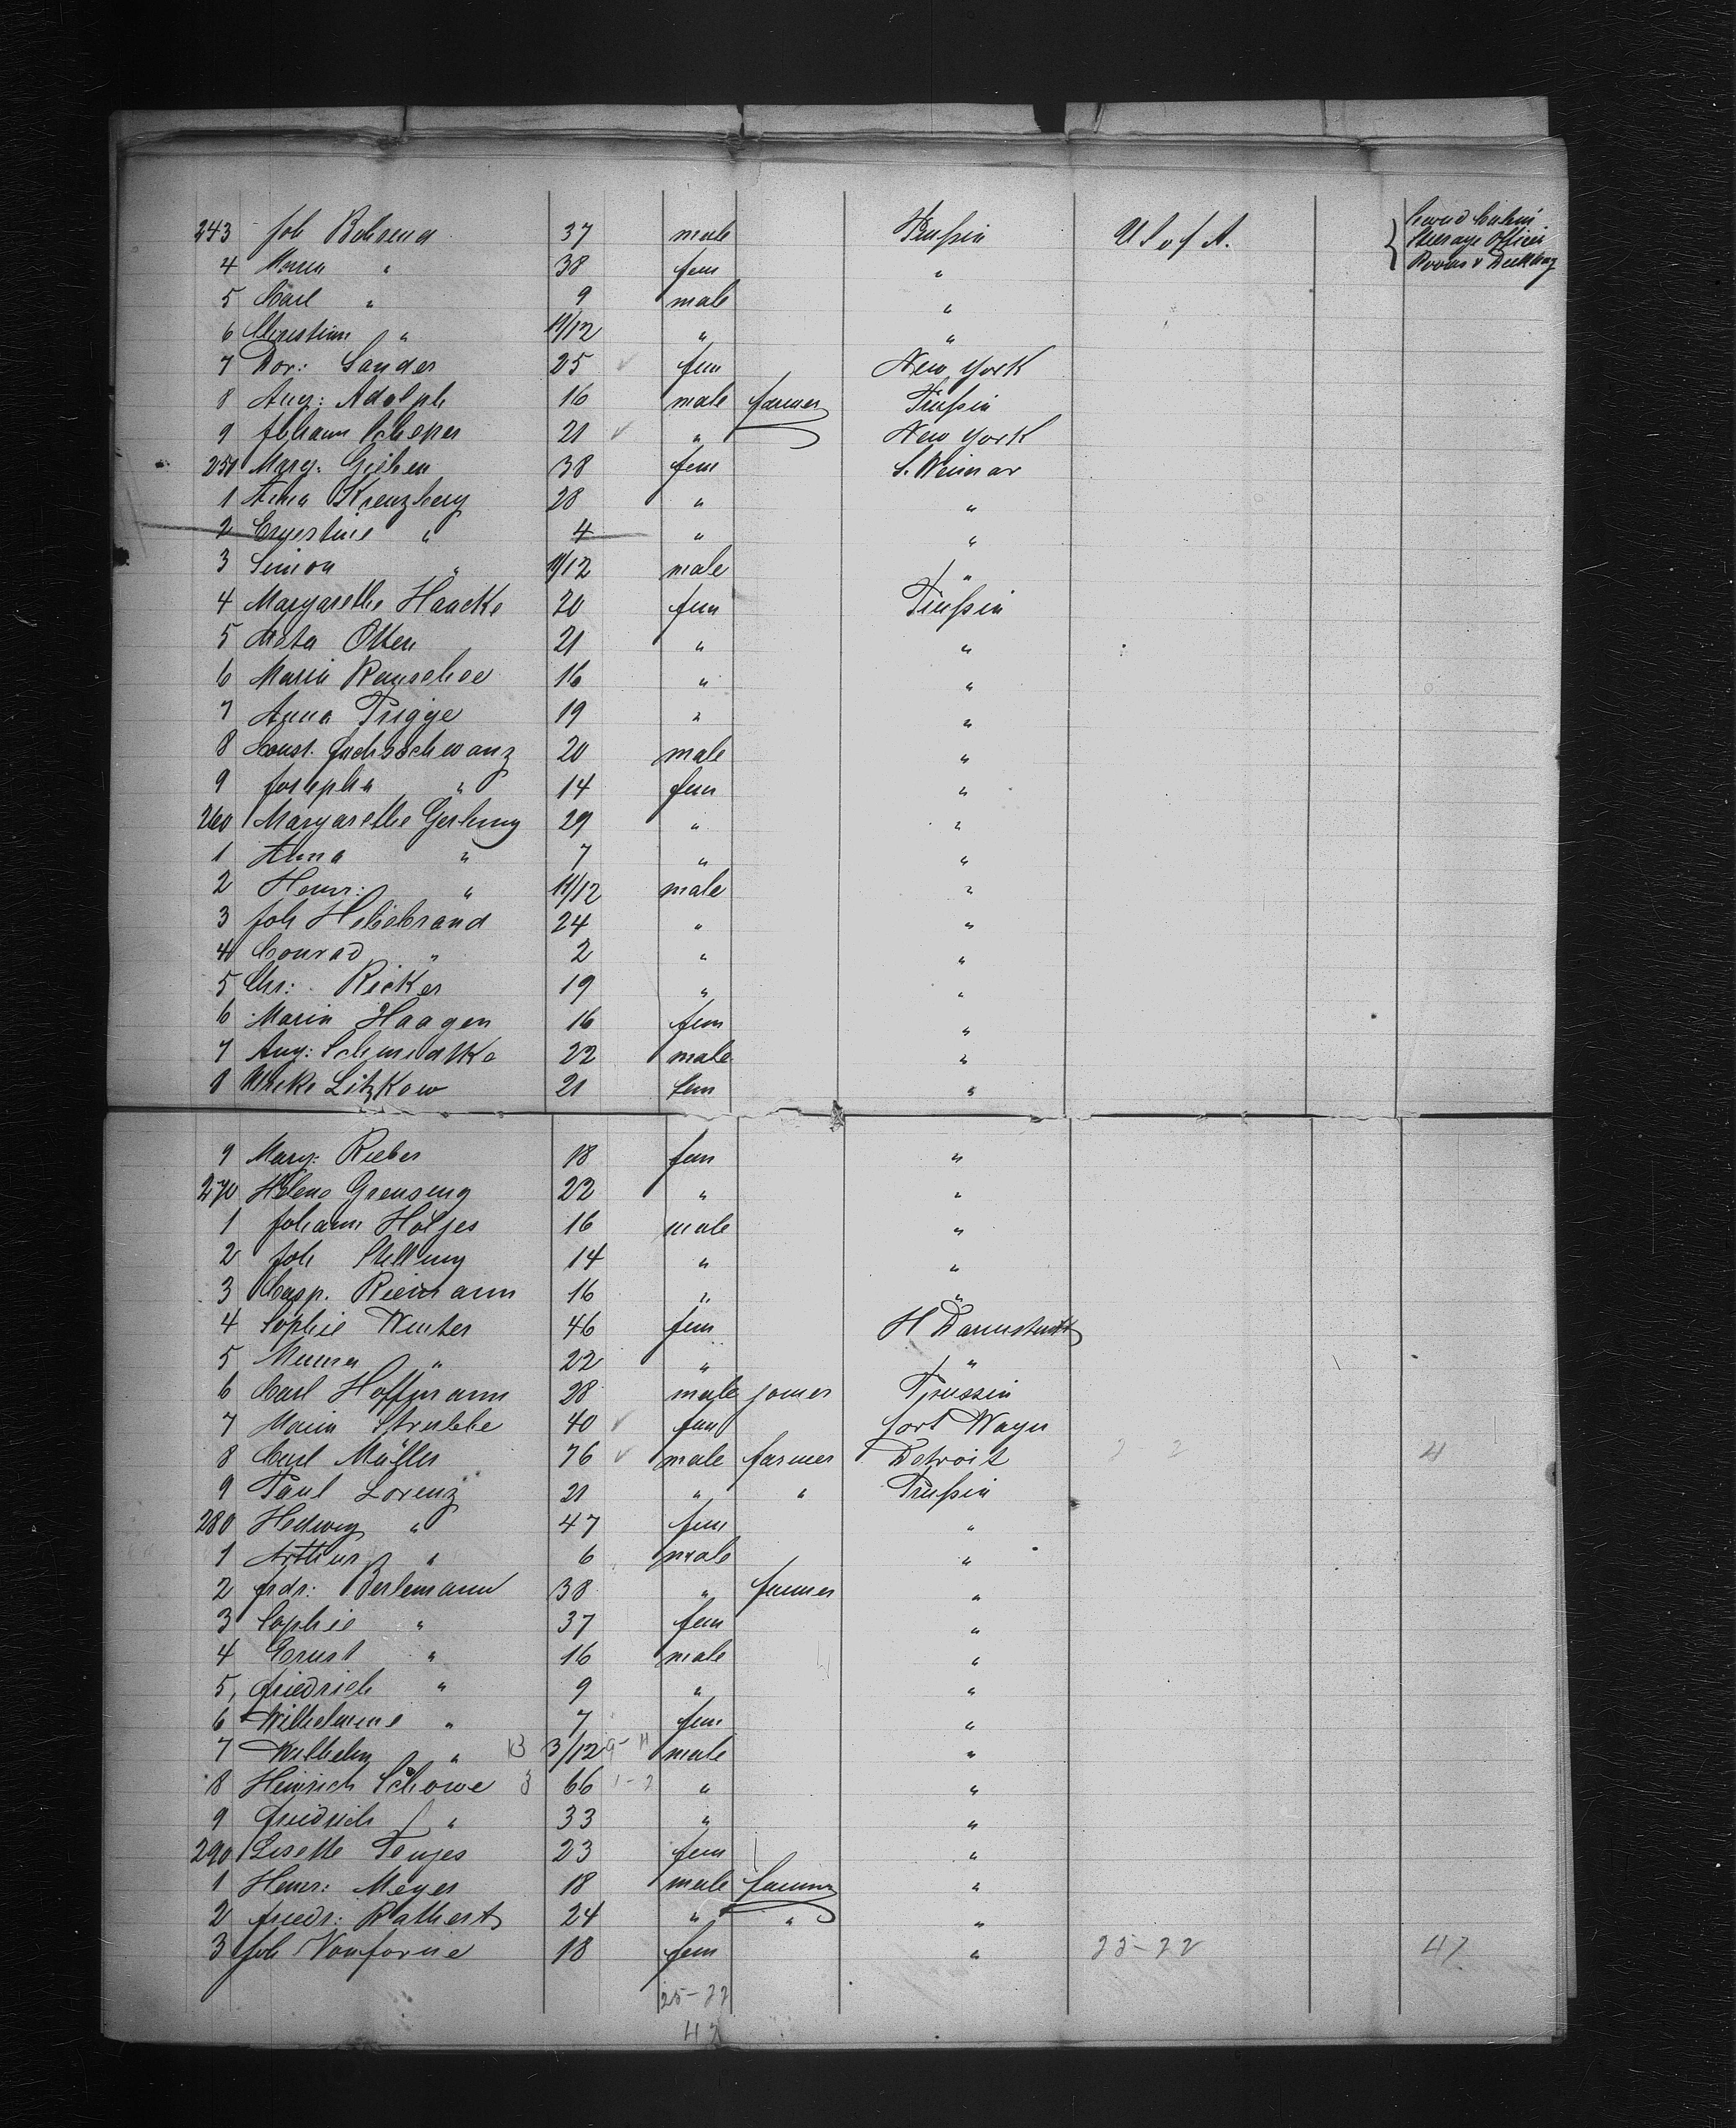 243 Joh Behrend 37 male Preußin U S of A. Second Cabin
4 Maria " 38 fem " Steerage Officer
5 Carl " 9 male " Rooms v Deck
6 Christian " 11/12 " "
7 Dor: Sander 25 fem New York
8 Aug: Adolph 16 male farmer Preußin
9 Johann 21 " New York
251 Marg: 38 fem S. Weimar
1 Anna Kreuzberg 28 " "
2 Ernestine " 4 " "
3 Simon " 11/12 male "
4 Margarethe Haacke 20 fem Preußin
5 Meta Otten 21 " "
6 Maria 16 " "
7 Anna Prigge 19 " "
8 Const. Fuchsschwanz 20 male "
9 Josepha " 14 fem "
260 Margarethe 29 " "
1 Anna " 7 " "
2 Henr: " 11/12 male "
3 Joh Hildebrand 24 " "
4 Conrad " 2 " "
5 Chr: Ricker 19 " "
6 Maria Haagen 16 fem "
7 Aug: Schmidtke 22 male "
8 Litzkow 21 fem "
9 Marg: Rieber 18 fem "
270 Helene Grensing 22 " "
1 Johann Holjes 16 male "
2 Joh Stelling 14 " "
3 Casp. Riemann 16 " "
4 Sophie Winter 46 fem H Darmstadt
5 " 22 " "
6 Carl Hoffmann 28 male joiner Prussin
7 Maria Strubbe 40 fem Fort Wayn
8 Carl Müller 76 male farmer Detroit 2 2 4
9 Paul Lorenz 21 " " Preußin
280 Hedwig " 47 fem "
1 Arthur " 6 male "
2 Frdr: Berlemann 38 " farmer "
3 Sophie " 37 fem "
4 Ernst " 16 male "
5 Friedrich " 9 " "
6 Wilhelmine " 7 fem "
7 Wilhelm " 3/12 male "
8 Heinrich Schowe 66 " "
9 Friedrich " 33 " "
290 Lisette Tenjes 23 fem "
1 Henr: Meyer 18 male farmer "
2 Friedr: Rathert 24 " " "
3 Joh 18 fem " 25-22 47
25-22
47